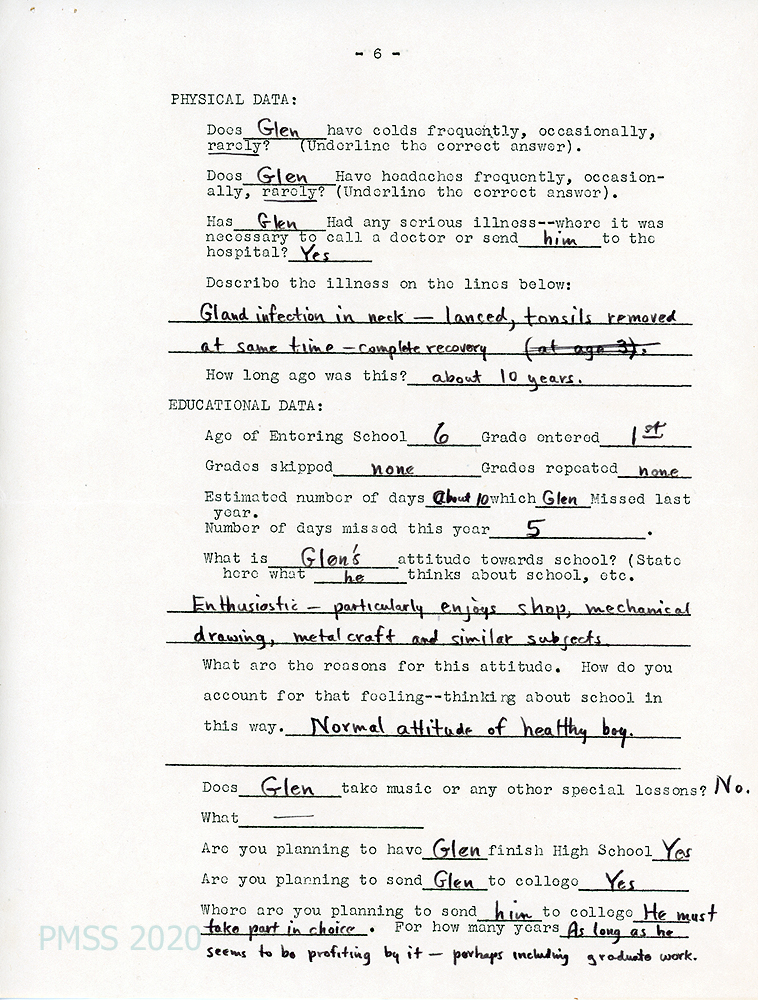 - 6 -
PHYSICAL DATA:
Does Glen have colds frequently, occasionally,
rarely? (Underline the correct answer).
Does Glen Have headaches frequently, occasion-
ally, rarely? (Underline the correct answer).
Has Glen Had any serious illness--where it was
necessary to call a doctor or send him to the
hospital? Yes
Describe the illness on the lines below:
Gland infection in neck — lanced, tonsils removed
at same time — complete recovery (at age 3).
How long ago was this? about 10 years.
EDUCATIONAL DATA:
Age of Entering School 6 Grade entered 1st
Grades skipped none Grades repeated none
Estimated number of days About 10 which Glen Missed last
year.
Number of days missed this year 5 .
What is Glen's attitude towards school? (State
here what he thinks about school, etc.
Enthusiastic — particularly enjoys shop, mechanical
drawing, metal craft and similar subjects
What are the reasons for this attitude. How do you
account for that feeling--thinking about school in
this way. Normal attitude of healthy boy.
Does Glen take music or any other special lessons? No.
What —
Are you planning to have Glen finish High School Yes
Are you planning to send Glen to college Yes
Where are you planning to send him to college He must
take part in choice . For how many years As long as he
seems to be profiting by it — perhaps including graduate work.
PMSS 2020